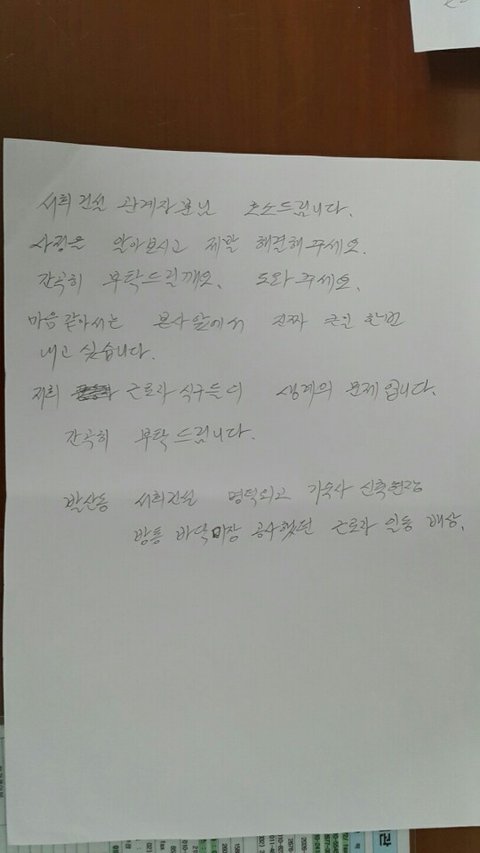 서희건설 관계자분님 호소드립니다.
사정을 알아보시고 제발 해결해주세요.
간곡히 부탁드릴께요. 도와주세요.
마음같아서는 본사앞에서 진짜 큰일 한번
내고 싶습니다.
저희 근로자식구들의 생계의 문제입니다.
간곡히 부탁드립니다.
발산동 서희건설 명덕외고 기숙사 신축현장
방통 바닥미장 공사했던 근로자 일동 배상.